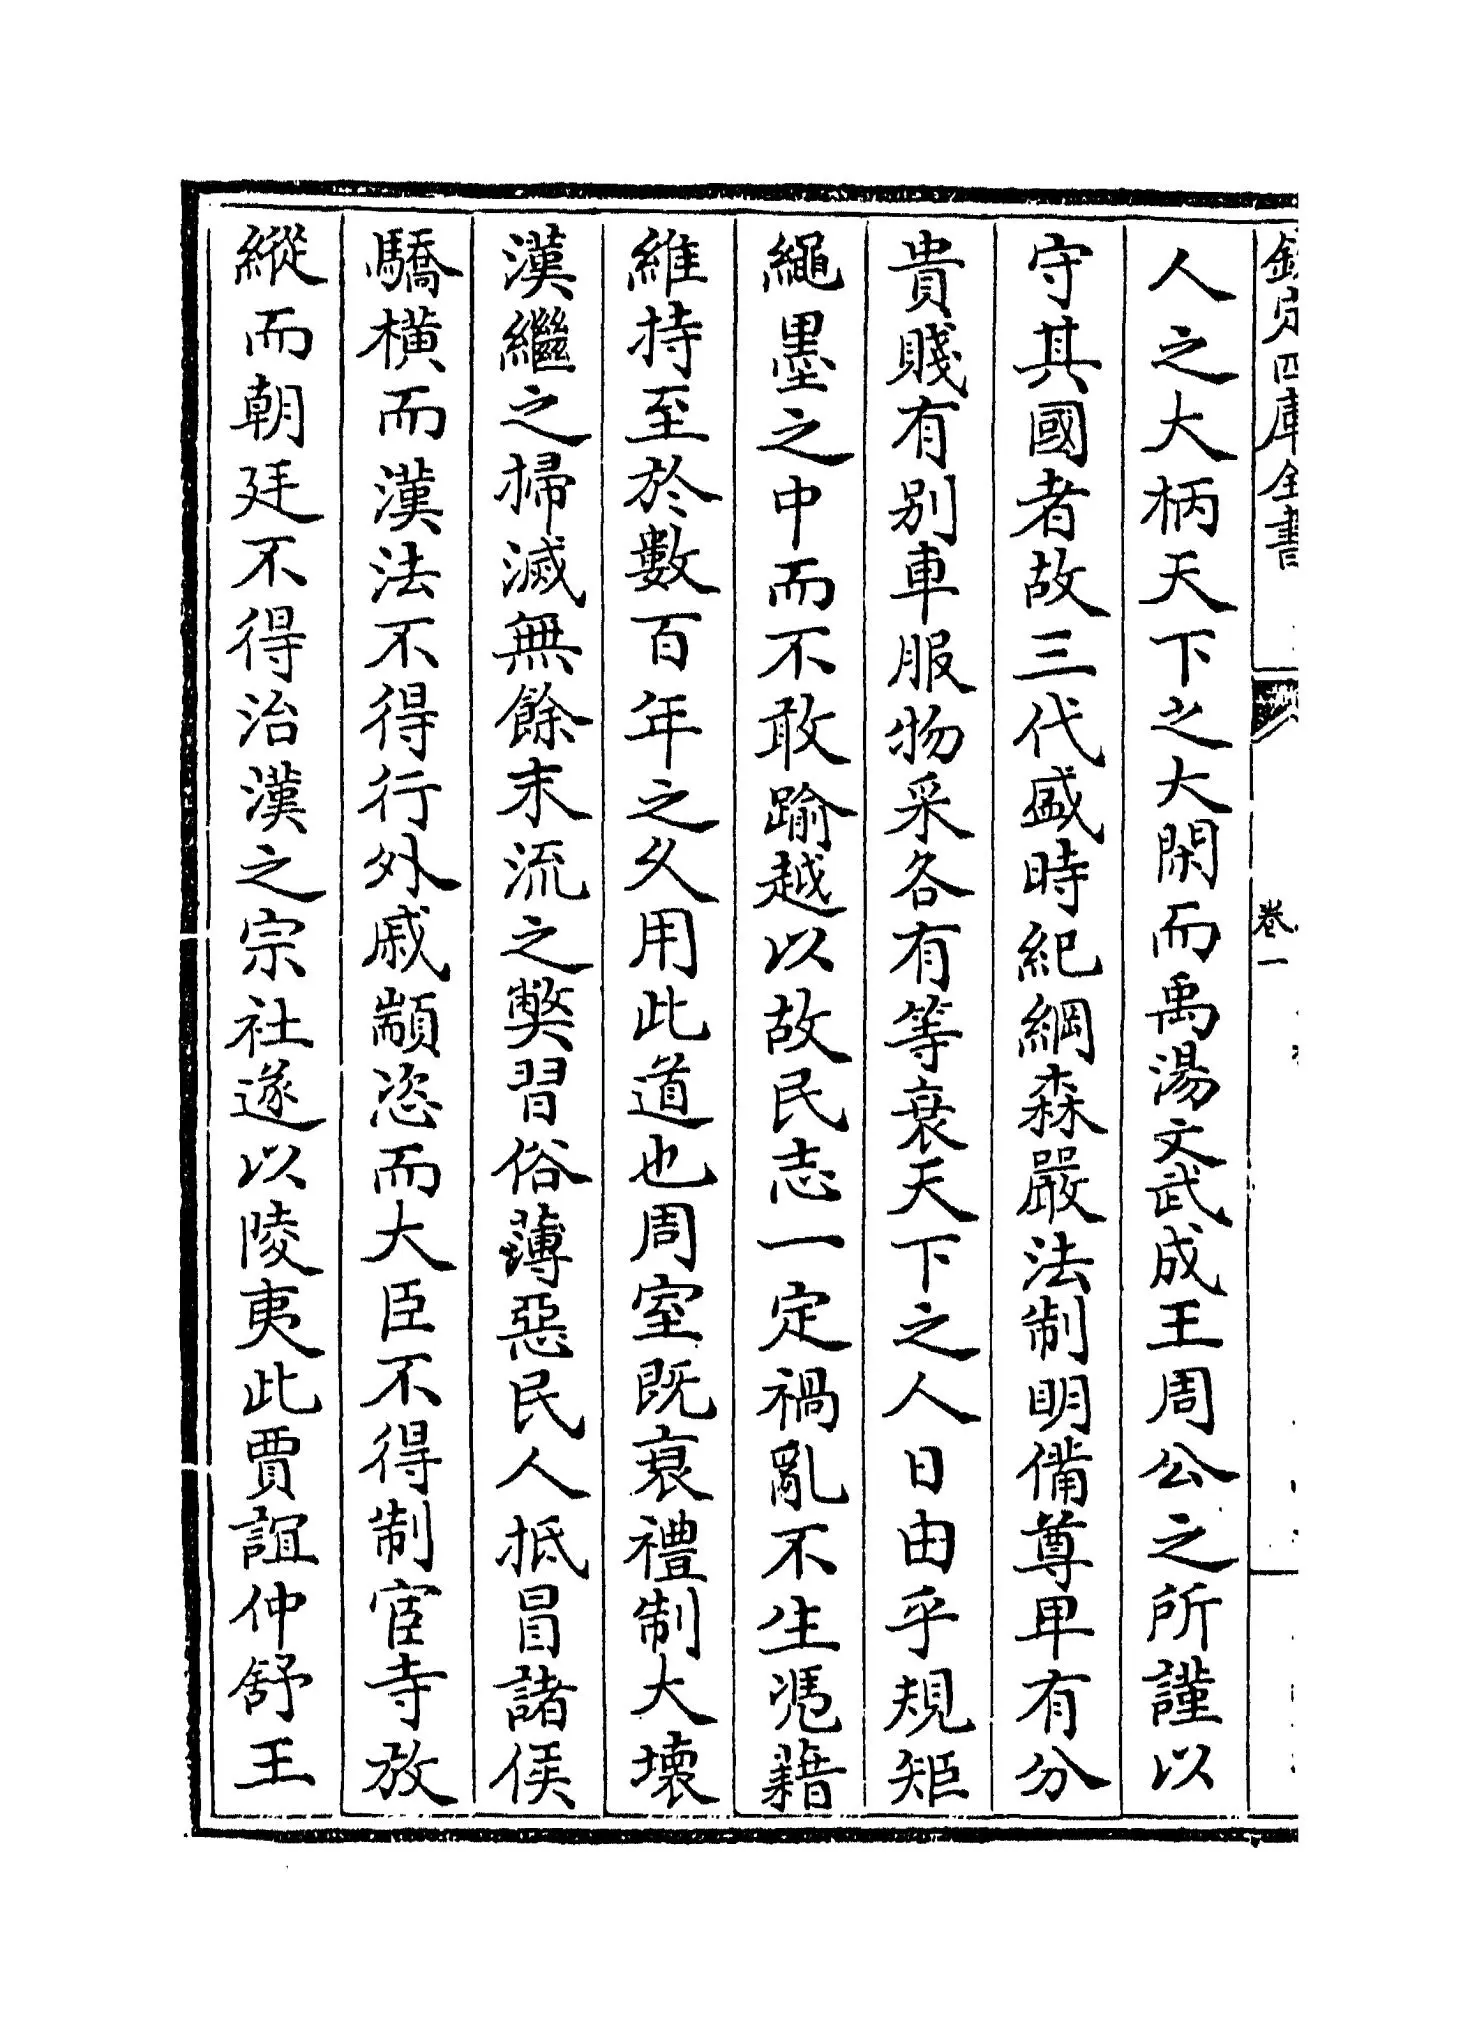 欽定四庫全書
卷一
人之大柄天下之大閑而禹湯文武成王周公之所謹以
守其國者故三代盛時紀綱森嚴法制明備尊卑有分
貴賤有別車服物采各有等衰天下之人日由乎規矩
繩墨之中而不敢踰越以故民志一定禍亂不生憑藉
維持至於數百年之久用此道也周室既衰禮制大壞
漢繼之掃滅無餘末流之弊習俗薄惡民人抵冒諸侯
驕橫而漢法不得行外戚顓恣而大臣不得制宦寺放
縱而朝廷不得治漢之宗社遂以陵夷此賈誼仲舒王